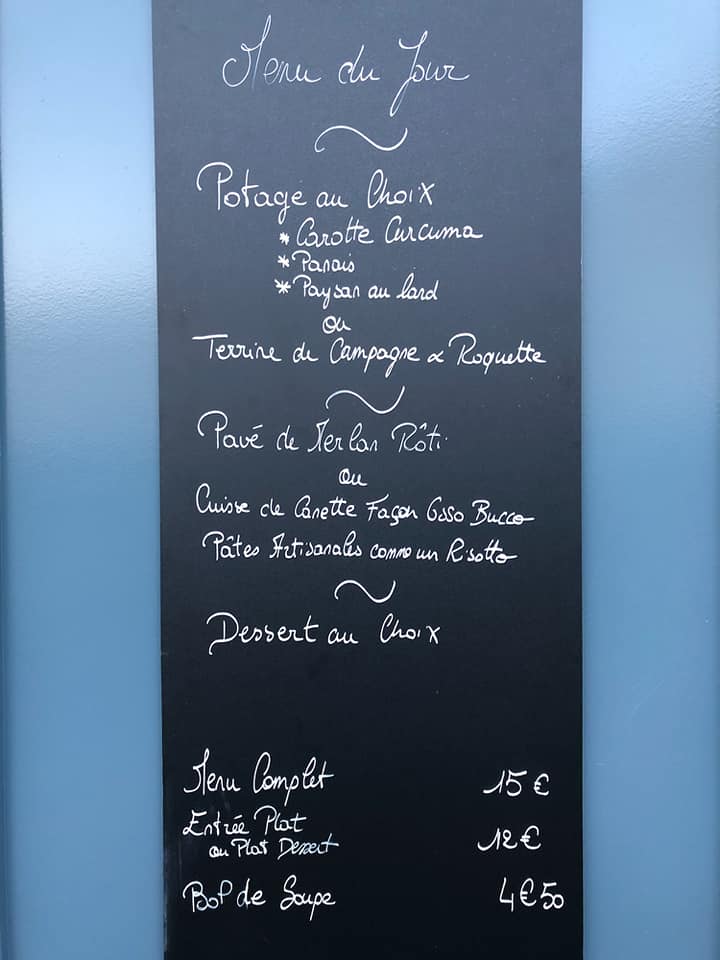 Menu du Jour
Potage au Choix
* Carotte Curcuma
* Panais
* Paysan au lard
ou
Terrine de Campagne & Roquette
Pavé de Merlan Rôti
ou
Cuisse de Canette Façon Osso Bucco
Pâtes Artisanales comme un Risotto
Dessert au Choix
Menu Complet 15 €
Entrée Plat
ou Plat Dessert 12 €
Bol de Soupe 4€50